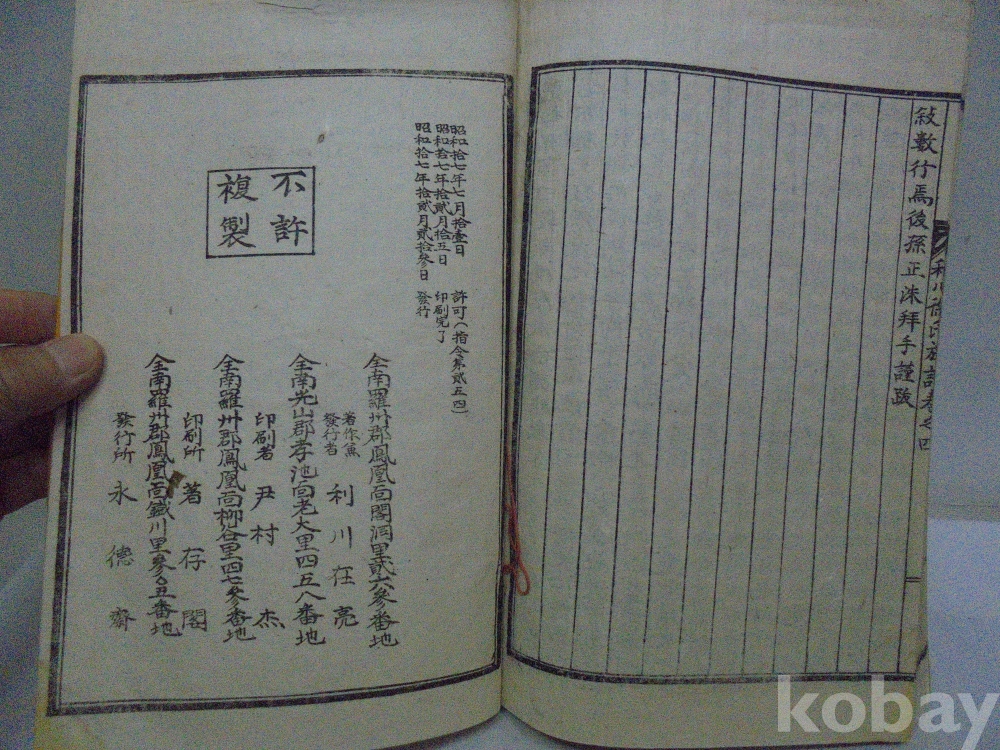 敍數行焉後孫正洙拜手謹跋
利川徐氏族譜卷之四
昭和拾七年七月拾壹日 許可(指令第貳五四)
昭和拾七年拾貳月拾五日 印刷完了
昭和拾七年拾貳月貳拾參日 發行
不許
複製
全南羅州郡鳳凰面閣洞里貳六參番地
著作兼
發行者 利川在亮
全南光山郡孝池面老大里四五八番地
印刷者 尹村杰
全南羅州郡鳳凰面柳谷里四七參番地
印刷所 著存閣
全南羅州郡鳳凰面鐵川里參〇五番地
發行所 永德齋
kobay